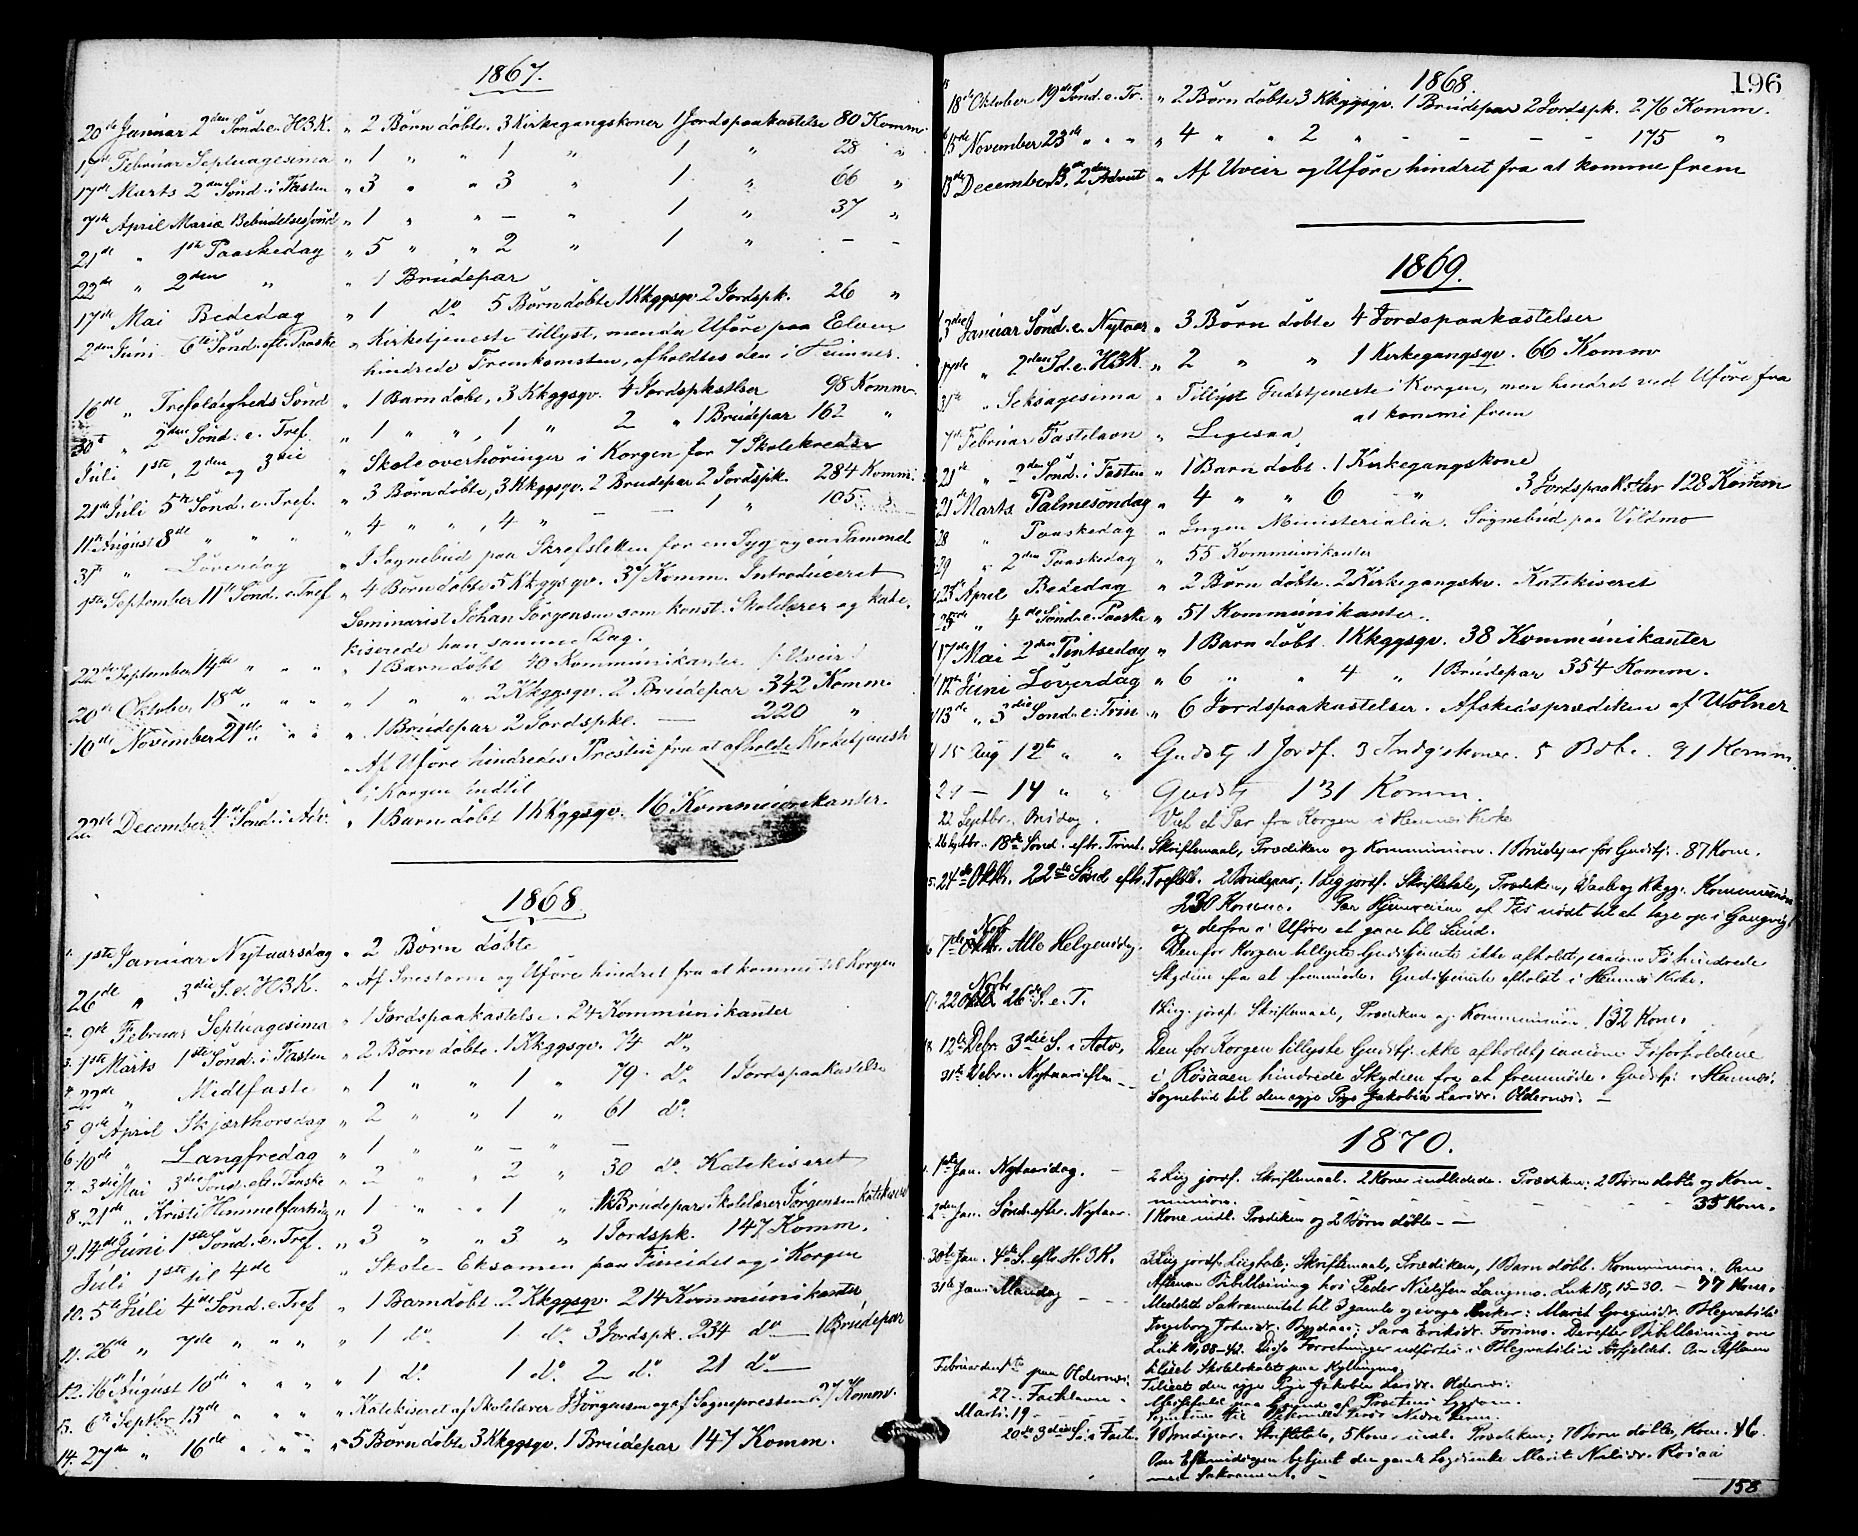 1867.
20de Januar 2den Sønd. e. H3K. " 2 Børn døbte. 3 Kirkegangskoner 1 Jordspaakastelse 80 Komm.
17de Februar Septuagesima " 1 " " 1 " 1 " 28 "
17de Marts 2den Sønd. i Fasten " 3 " " 3 " 1 " 66 "
7de April Mariæ Bebudelsesfond " 1 " " – " 1 " 37 "
21de " 1ste Paaskedag " 5 " " 2 " 1 " – –
22de " 2den " " 1 Brudepar
17de Mai Bededag " 1 do. 5 Børn døbte 1 Kkggsqv. 2 Jordspk. 26 "
2den Juni 6te Sønd. eft. Paaske " Kirketjeneste tillyst, menda Uføre paa Elven
hindrede Fremkomsten, afholdtes den i
16de " Trefoldigheds Sønd " 1 Barn døbt, 3 Kkggsqv. 4 Jordspkstlser 98 Komm.
30te " 2den Sønd. e. Tref. " 1 " ", 1 " 2 " 1 Brudepar 162 "
Juli 1ste, 2den og 3die " Skoleoverhøringer i Korgen for 7 Skolekredse
21de Juli 5te Sønd. e. Tref. " 3 Børn døbte, 3 Kkggsqv. 2 Brudepar 2 Jordspk. 284 Komm.
11te August 8de " " " " 4 " ", 4 " – – 1 " 105
31te " Løverdag " I Sognebud paa Skrefsletten for en Syg og en Gammel
1ste September 11te Sønd. e. Tref " 4 Børn døbte 5 Kkggsqv. 37 Komm. Introduceret
Seminarist Johan Jørgensen som konst. Skolelærer og kate-
kiserede han samme Dag.
22de September 14de " " " " 1 Barn døbt 40 Kommunikanter (: Uveir :)
20de Oktober 18de " " " " 1 " " 2 Kkggsqv. 2 Brudepar 342 Komm.
10de November 21de " " " " 1 Brudepar 2 Jordspkl. — 220 "
" Af Uføre hindredes Præsten fra at afholde Kirketjeneste
i Korgen indtil
22de December 4de Sønd. i Adv. " 1 Barn døbt 1 Kkggsqv. 16 Kommunikanter.
1868
1. 1ste Januar Nytaarsdag " 2 Børn døbte
26de " 3die S. e. H3K. " Af Snestorm og Uføre hindret fra at komme til Korgen
2. 9de Februar Septuagesima " 1 Jordspaakastelse. 24 Kommunikanter
3. 1ste Marts 1ste Sønd. i Fasten " 2 Børn døbte. 1 Kkggsqv. 74 do.
4. 22de " Midtfaste " 1 " " 1 " 79 do. 1 Jordspaakastelse
5. 9de April Skjærthorsdag " 2 " " 1 " 61 do.
6. 10de " Langfredag " 1 " " – " –
7. 3die Mai 3die Sønd. eft. Paaske " 2 " " 2 " 30 do. Katekiseret
8. 21de " Kristi Himmelfartsdag " 1 " " 1 " 1 Brudepar. Skolelærer Jørgensen katekiserede
9. 14de Juni 1ste Sønd. e. Tref. " 3 " " 3 " 1 Jordspk. 147 Komm.
Juli 1ste til 4de " Skole-Eksamen paa Fineidet og i Korgen
10. 5te Juli 4de Sønd. e. Tref " 1 Barn døbt. 2 Kkggsqv. 214 Kommunikanter
11. 26de " 7de " " " " 1 do. 1 do. 3 Jordspk. 234 do. — 1 Brudepar
12. 16de August 10de " " " " 1 do. 1 do. 2 do. 21 do. —
13. 6te Septbr 13de " " " " Katekiseret af Skolelærer Jørgensen og af Sognepresten 27 Komm.
14. 27de " 16de " " " " 5 Børn døbte 3 Kkggsqv. 1 Brudepar 147 Komm.
196
1868.
18de Oktober 19de Sønd. e. Tr. " 2 Børn døbte 3 Kkggsqv. 1 Brudepar 2 Jordspk. 276 Komm.
15de November 23de " " " " 4 " " 2 " – – – 175 "
13de December 2den Advent " Af Uveir og Uføre hindret fra at komme frem
1869.
3die Januar Sønd. e. Nytaar " 3 Børn døbte 4 Jordspaakastelser
17de " 2den Sd. e. H3K. " 2 " " 1 Kirkegangsqv. 66 Komm.
31te " Seksagesima " Tillyst Gudstjeneste i Korgen, men hindret ved Uføre fra
at komme frem
7de Februar Fastelavn " Ligesaa
21de " 2den Sønd. i Fasten " 1 Barn døbt. 1 Kirkegangskone
21de Marts Palmesøndag " 4 " " 6 " 3 Jordspaakstlser 128 Komm
28 " Paaskedag " Ingen Ministerialia. Sognebud paa Vildmo
29 " 2den Paaskedag " 55 Kommunikanter
23de April Bededag " 2 Børn døbte. 2 Kirkegangskv. Katekiseret
25de " 4de Sønd. e. Paaske " 51 Kommunikanter.
17de Mai 2den Pintsedag " 1 Barn døbt. 1 Kkggsqv. 38 Kommunikanter
12te Juni Løverdag " 6 " " 4 " 1 Brudepar 354 Komm.
13de " 3die Sønd. e. Trin " 6 Jordspaakastelser. Afskedsprædiken af Utølner
15 Aug 12te " " Gudstj 1 Jordf. 3 Indg.skoner. 5 Bdbt. 91 Komm.
29 — 14 " " Gudstj 131 Komm.
22 Septbr. Onsdag. Viet et Par fra Korgen i Hemnes Kirke
26 Septbr. 18de Sønd. eftr. Trint. Skriftemaal, Prædiken og Kommunion. 1 Brudepar før Gudstj. 87 Kom.
24de Oktbr. 22de Sønd. eftr. Trefold. 2 Brudepar; 1 Lig jordf. Skriftetale, Prædiken, Daab og Kkgg. Kommunion
230 Komm. Paa Hjemreisen af Iis nødt til at lægge op i Gangvig
og derfra i Uføre at gaae til Sund.
7de Novbr. Alle Helgensdag. Den for Korgen tillyste Gudstjeneste ikke afholdt, saasom Iis hindrede
Skydsen fra at fremmøde. Gudstjeneste afholdt i Hemnes Kirke.
17. 22 Novbr 26de S. e. T. 1 Lig jordf. Skriftemaal, Prædiken og Kommunion. 132 Kom.
18. 12te Debr. 3die S. i Adv. Den for Korgen tillyste Gudstj. ikke afholdt, saasom Isforholdene
i Røsaaen hindrede Skydsen fra at fremmøde. Gudstj. i Hemnes.
31te Debr. Nytaarsaften – – Sognebud til den syge Pige Jakobia Larsdr. Oldernes. –
1870.
1ste Jan. Nytaarsdag. – 2 Lig jordf. Skriftemaal. 2 Koner indledede. Prædiken; 2 Børn døbte og Kom-
munion. – – – – – – 35 Kom.
2den Jan. Sønd. eftr. Nytaar. 1 Kone indl. Prædiken og 2 Børn døbte – –
30te Jan. 4de S. eftr. H.3K. 3 Lig jordf. Ligtale, Skriftemaal, Prædiken, 1 Barn døbt. Kommunion. Om
Aftenen Bibellæsning hos Peder Nielsen Langmo. Luk 18, 15–30. – 77 Kom.
31te Jan. Mandag – – Meddelt Sakramentet til 3 gamle og svage Enker: Marit Gregusdr.
Ingeborg Johnsdr. Bogdaas; Sara Eriksdr. Forsmo. Derefter Bibellæsning over
Luk 10, 38–42. Disse Forretninger udførtes i Om Aftenen
tilset Skolelokalet paa Kyllingmo.
Februar den 1ste paa Oldernes. Tilseet den syge Pige Jakobia Larsdr. Oldernes.
27 – Fastelavn – Afholdt paa Grund af Præstens Sygdom.
Marts 19 Sognebud til
20de 3die S. i Fast. 1 Brudepar. Skriftetale, 5 Koner indl. Prædiken; 7 Børn døbte, Kom. 46.
Om Eftermiddagen betjent den gamle Marit Nilsdr. Røsaa
med Sakrament. –
158